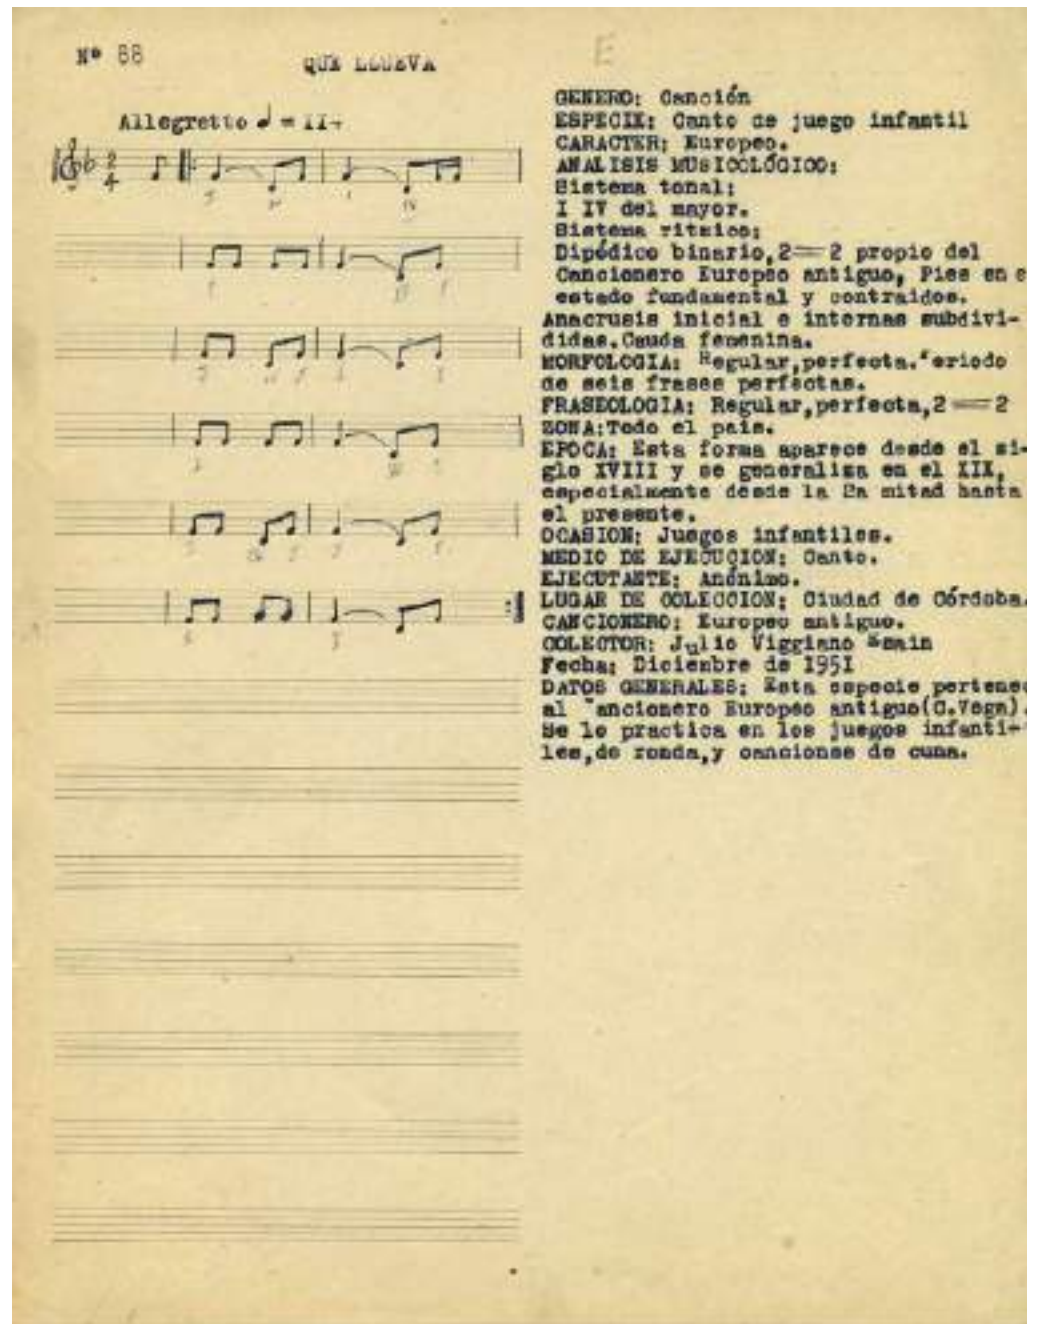 Nº 88
QUE LLUEVA
E
Allegretto ♩ = 114
2
4
GENERO: Canción
ESPECIE: Canto de juego infantil
CARACTER: Europeo.
ANALISIS MUSICOLÓGICO:
Sistema tonal:
I IV del mayor.
Sistema ritmico:
Dipódico binario,2══2 propio del
Cancionero Europeo antiguo, Pies en e
estado fundamental y contraidos.
Anacrusis inicial e internas subdivi-
didas.Cauda femenina.
MORFOLOGIA: Regular,perfecta.Periodo
de seis frases perfectas.
FRASEOLOGIA: Regular,perfecta,2══2
ZONA:Todo el pais.
EPOCA: Esta forma aparece desde el si-
glo XVIII y se generaliza en el XIX,
especialmente desde la 2a mitad hasta
el presente.
OCASION: Juegos infantiles.
MEDIO DE EJECUCION: Canto.
EJECUTANTE: Anónimo.
LUGAR DE COLECCION: Ciudad de Córdoba.
CANCIONERO: Europeo antiguo.
COLECTOR: Julio Viggiano Esain
Fecha: Diciembre de 1951
DATOS GENERALES: Esta especie pertenec
al Cancionero Europeo antiguo(C.Vega).
Se lo practica en los juegos infanti-
les,de ronda,y canciones de cuna.